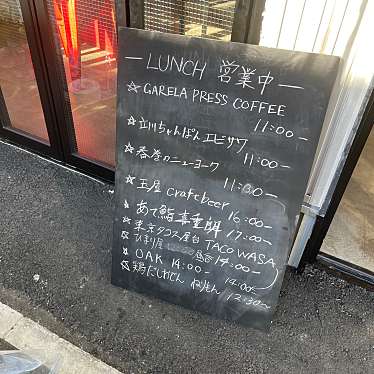 LUNCH 営業中
☆ GARELA PRESS COFFEE
11:00 —
☆ 立川ちゃんぽんエビサワ
11:00 —
☆ 春巻のニューヨーク
11:30 —
☆ 玉屋 Craftbeer 16:00 —
あて鮨 喜重朗 17:00 —
☆ 東京タコス屋台 TACO WASA
ひまり屋 14:00 —
☆ OAK 14:00 —
14:00 —
☆ 鶏だしおでん
12:30 ~